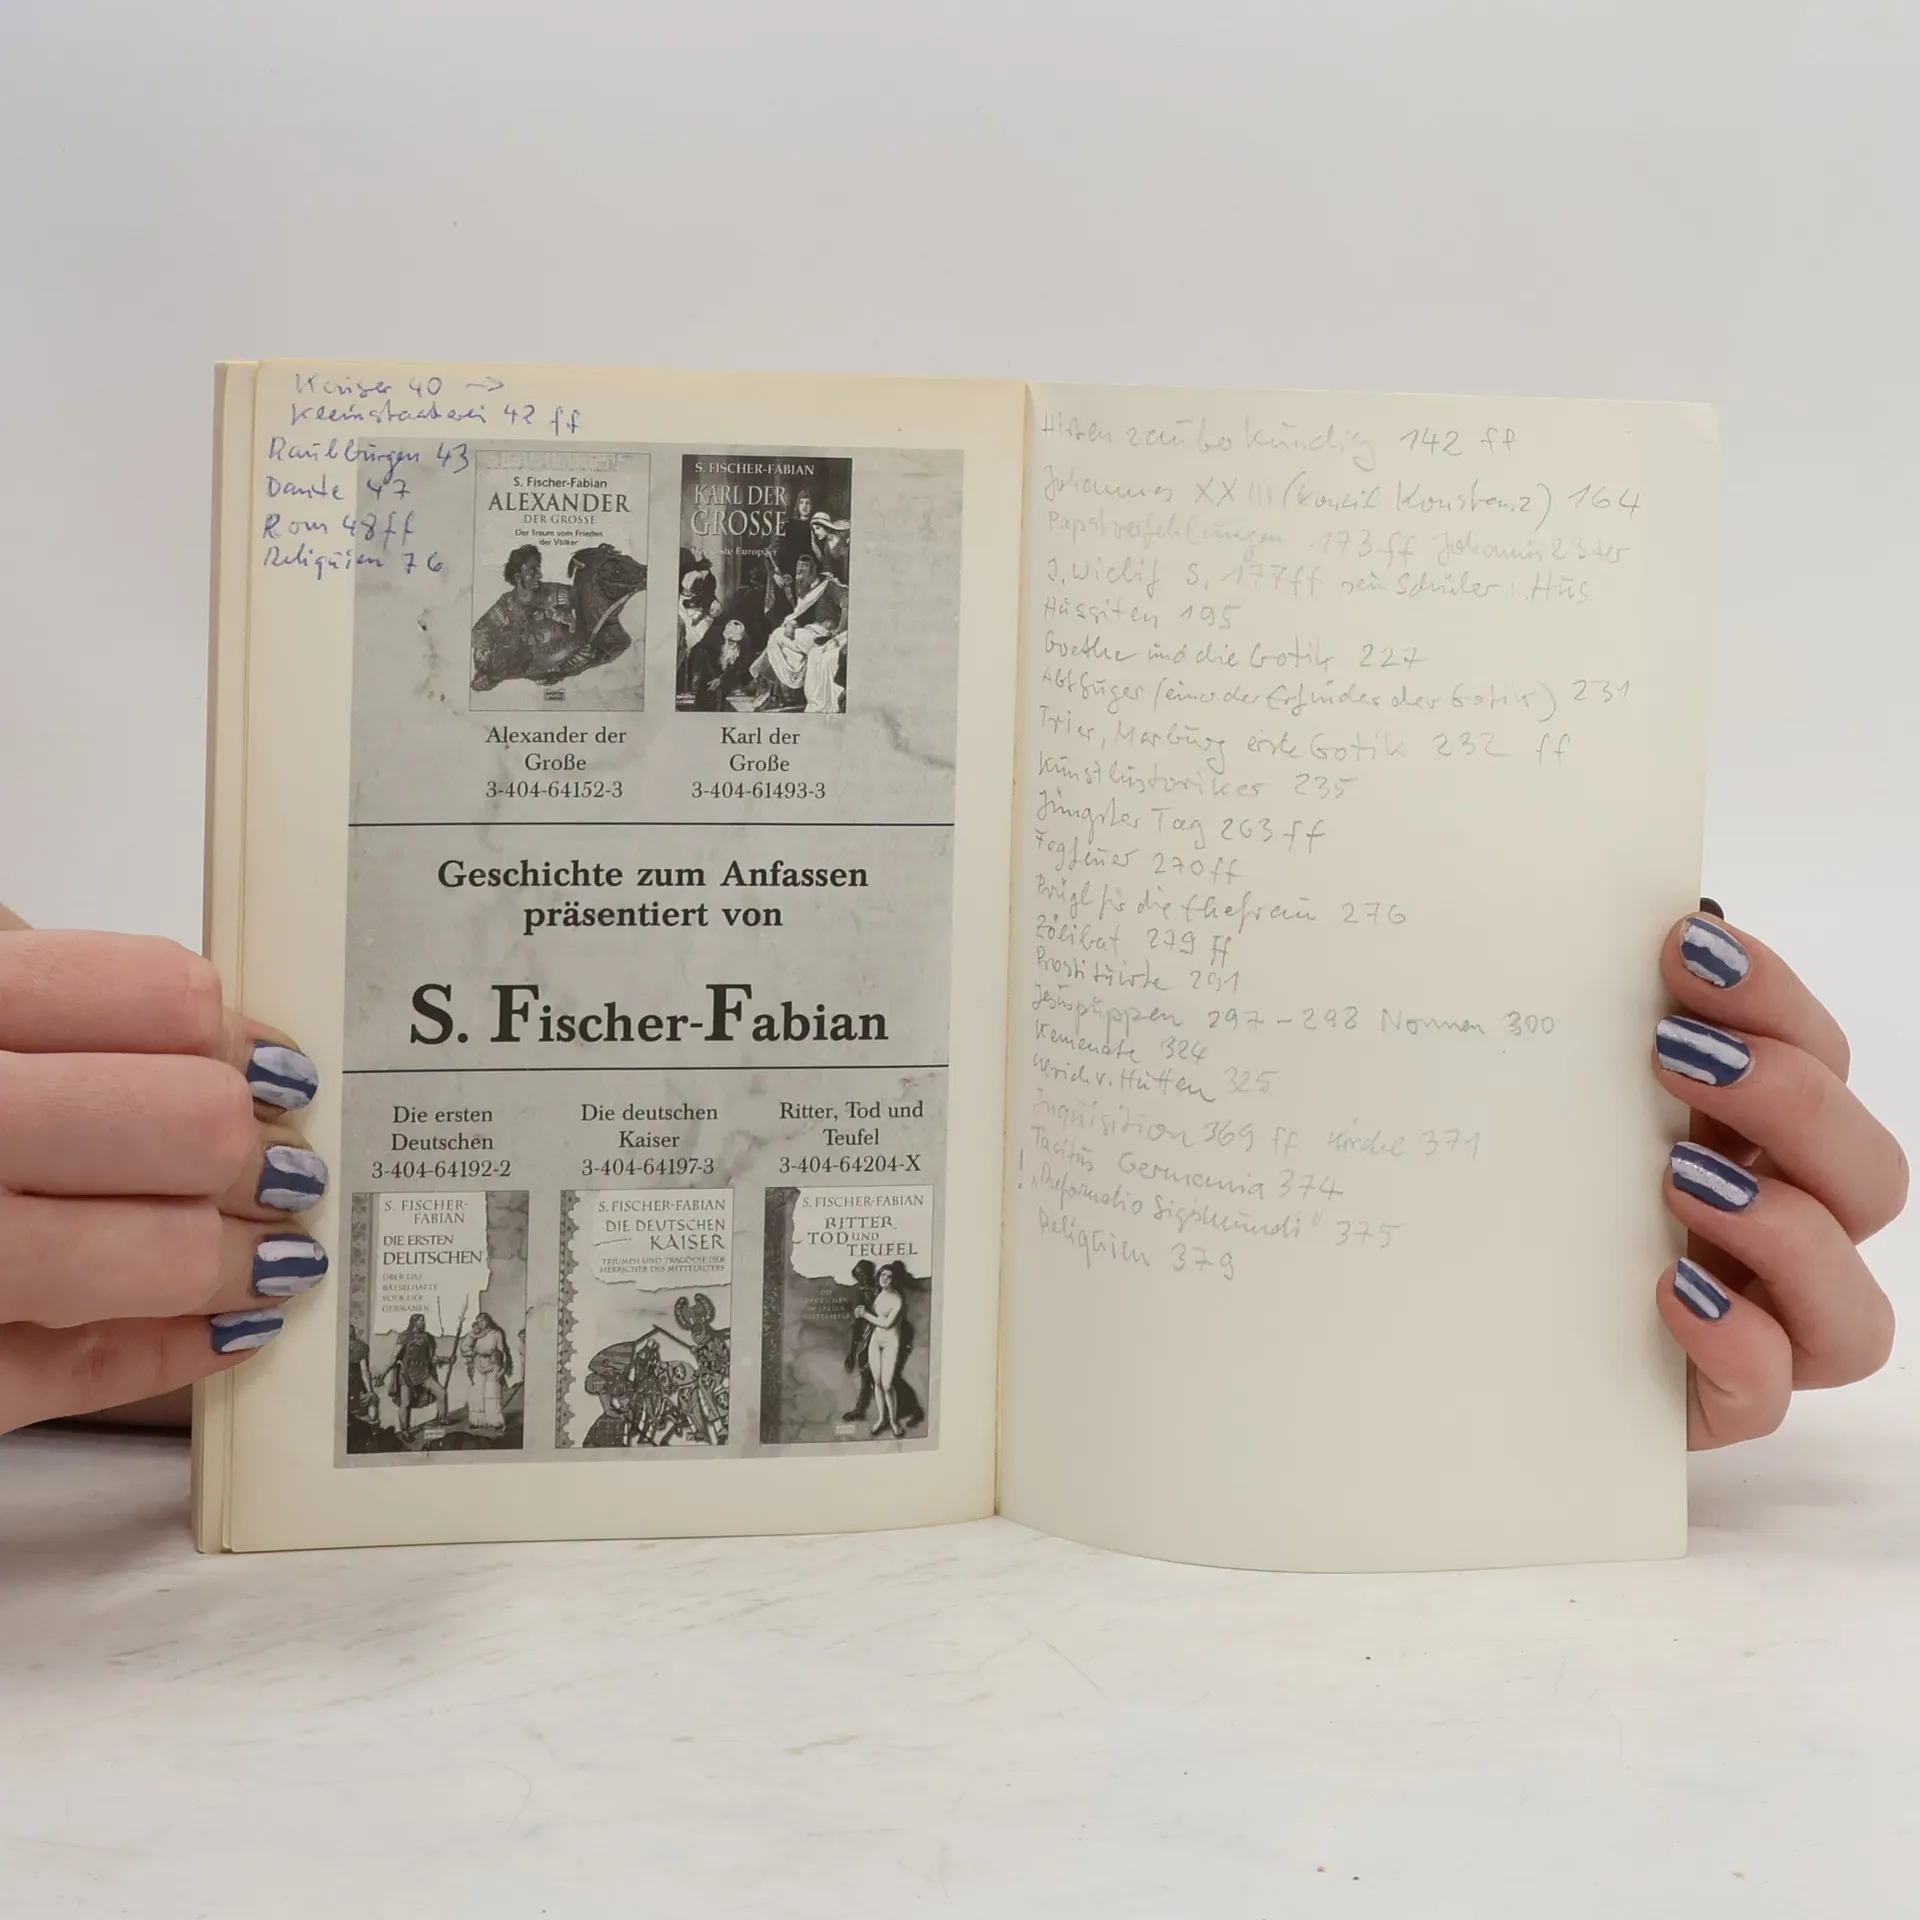 Kaiser 40 →
Kleinstaaterei 42 ff
Raubburgen 43
Dante 47
Rom 48 ff
Reliquien 76
S. Fischer-Fabian
ALEXANDER
DER GROSSE
Der Traum vom Frieden
der Völker
S. FISCHER-FABIAN
KARL DER
GROSSE
Der erste Europäer
Alexander der
Große
3-404-64152-3
Karl der
Große
3-404-61493-3
Geschichte zum Anfassen
präsentiert von
S. Fischer-Fabian
Die ersten
Deutschen
3-404-64192-2
Die deutschen
Kaiser
3-404-64197-3
Ritter, Tod und
Teufel
3-404-64204-X
S. FISCHER-
FABIAN
DIE ERSTEN
DEUTSCHEN
ÜBER DAS
RÄTSELHAFTE
VOLK DER
GERMANEN
S. FISCHER-FABIAN
DIE DEUTSCHEN
KAISER
TRIUMPH UND TRAGÖDIE DER
HERRSCHER DES MITTELALTERS
S. FISCHER-FABIAN
RITTER
TOD UND
TEUFEL
Hirten zauberkundig 142 ff
Johannes XXIII (Konzil Konstanz) 164
Papstverfehlungen 173 ff Johannes 23ter
J. Wiclif S. 177 ff sein Schüler: Hus
Hussiten 195
Goethe und die Gotik 227
Abt Suger (einer der Erfinder der Gotik) 231
Trier, Marburg erste Gotik 232 ff
Kunsthistoriker 235
Jüngster Tag 263 ff
Fegfeuer 270 ff
Prügl für die Ehefrau 276
Zölibat 279 ff
Prostituierte 291
Jesuspuppen 297 – 298 Nonnen 300
Kemenate 324
Ulrich v. Hutten 325
Inquisition 369 ff Kirche 371
Tacitus Germania 374
! "Reformatio Sigismundi" 375
Reliquien 379